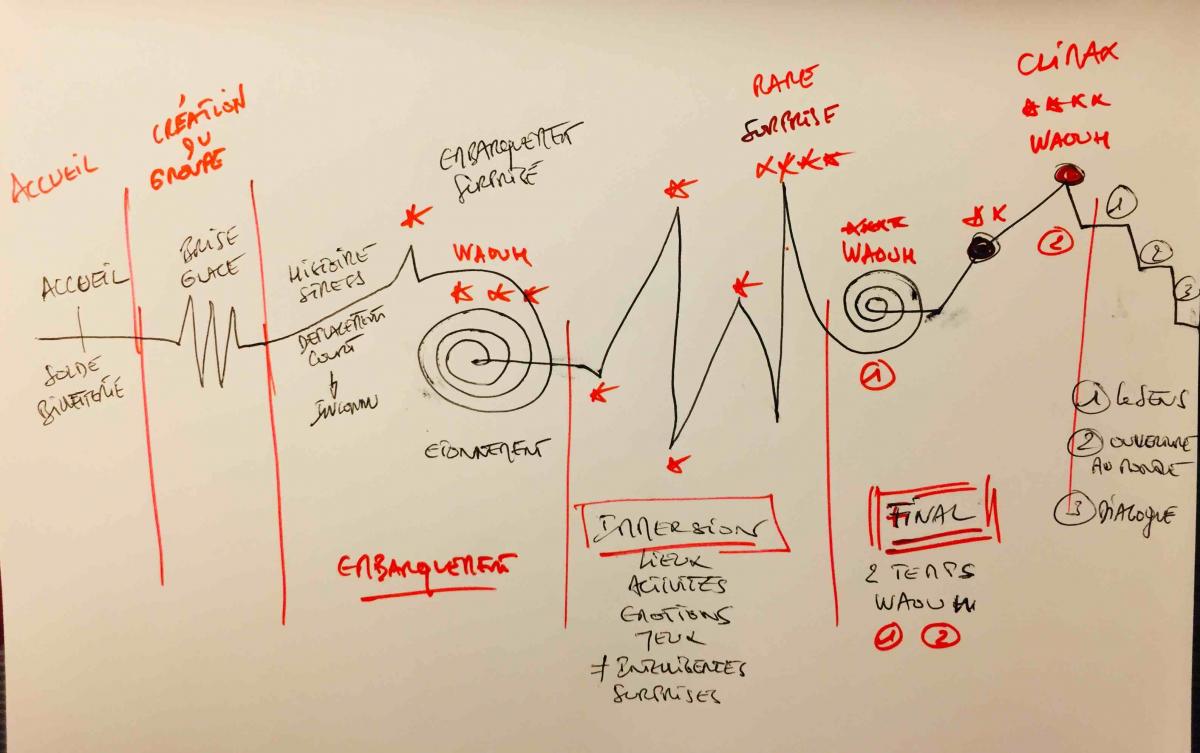 ACCUEIL
ACCUEIL
SOLDE
BILLETTERIE
CRÉATION
DU
GROUPE
BRISE
GLACE
HISTOIRE
STRESS
DEPLACEMENT
COURT
INCONNU
EMBARQUEMENT
SURPRISE
WAOUH
ETONNEMENT
EMBARQUEMENT
RARE
SURPRISE
IMMERSION
LIEUX
ACTIVITES
EMOTIONS
JEUX
≠ INTELLIGENTES
SURPRISES
WAOUH
1
FINAL
2 TEMPS
WAOUH
1 2
CLIMAX
WAOUH
2
1
2
3
1 LE SENS
2 OUVERTURE
AU MONDE
3 DIALOGUE